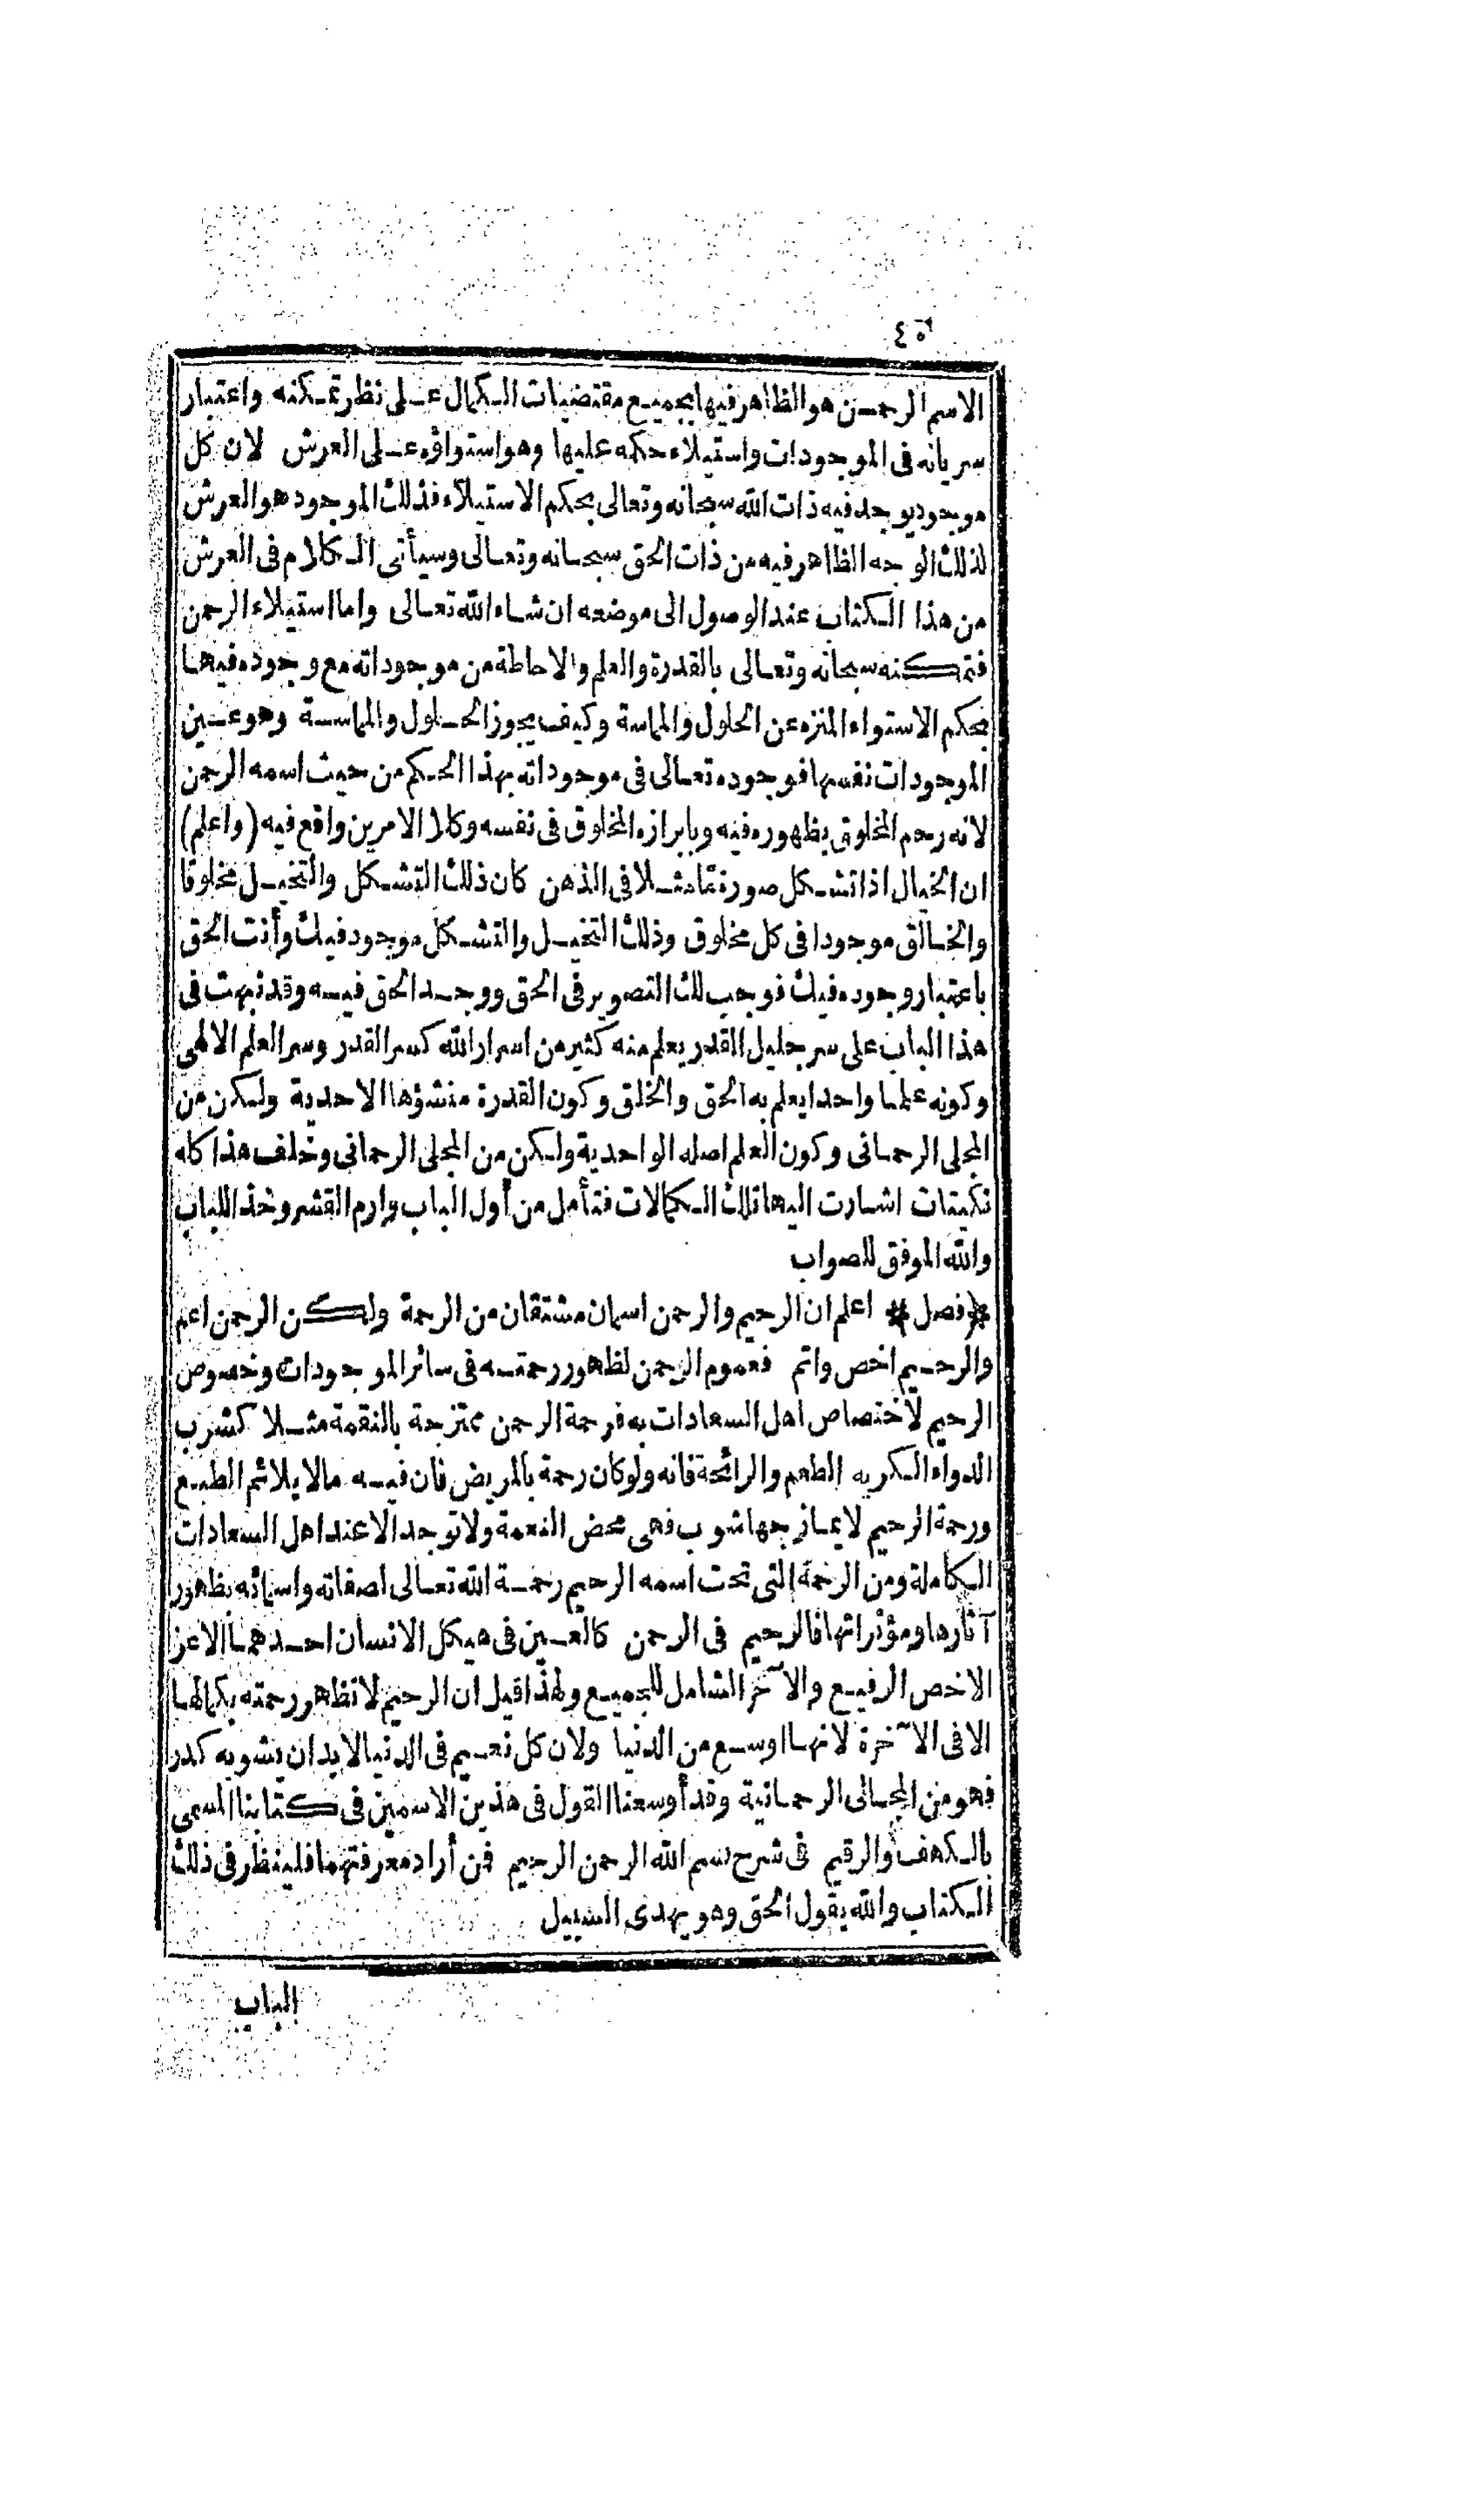 ٤٥
الاسم الرحمن هو الظاهر فيها بجميع مقتضيات الكمال على نظر تمكنه واعتبار
سريانه فى الموجودات واستيلاء حكمه عليها وهو استواؤه على العرش لان كل
موجود يوجد فيه ذات الله سبحانه وتعالى بحكم الاستيلاء فذلك الموجود هو العرش
لذلك الوجه الظاهر فيه من ذات الحق سبحانه وتعالى وسيأتى الكلام فى العرش
من هذا الكتاب عند الوصول الى موضعه ان شاء الله تعالى واما استيلاء الرحمن
فتمكنه سبحانه وتعالى بالقدرة والعلم والاحاطة من موجوداته مع وجوده فيها
بحكم الاستواء المنزه عن الحلول والمماسة وكيف يجوز الحلول والمماسة وهو عين
الموجودات نفسها فوجوده تعالى فى موجوداته بهذا الحكم من حيث اسمه الرحمن
لانه رحم المخلوق بظهوره فيه وبابرازه المخلوق فى نفسه وكلا الامرين واقع فيه (واعلم)
ان الخيال اذا تشكل صورة مّا مثلا فى الذهن كان ذلك التشكل والتخيل مخلوقا
والخالق موجودا فى كل مخلوق وذلك التخيل والتشكل موجود فيك وأنت الحق
باعتبار وجوده فيك فوجب لك التصوير فى الحق ووجد الحق فيه وقد نبهت فى
هذا الباب على سر جليل القدر يعلم منه كثير من اسرار الله كسر القدر وسر العلم الالهى
وكونه علما واحدا يعلم به الحق والخلق وكون القدرة منشؤها الاحدية ولكن من
المجلى الرحمانى وكون العلم اصله الواحدية ولكن من المجلى الرحمانى وخلف هذا كله
نكيتات اشارت اليها تلك الكمالات فتأمل من أول الباب وارم القشر وخذ اللباب
والله الموفق للصواب
﴿فصل﴾ اعلم ان الرحيم والرحمن اسمان مشتقان من الرحمة ولكن الرحمن اعم
والرحيم اخص واتم فعموم الرحمن لظهور رحمته فى سائر الموجودات وخصوص
الرحيم لاختصاص اهل السعادات به فرحمة الرحمن ممتزجة بالنقمة مثلا كشرب
الدواء الكريه الطعم والرائحة فانه ولو كان رحمة بالمريض فان فيه مالا يلائم الطبع
ورحمة الرحيم لا يمازجها شوب فهى محض النعمة ولا توجد الا عند اهل السعادات
الكاملة ومن الرحمة التى تحت اسمه الرحيم رحمة الله تعالى لصفاته واسمائه بظهور
آثارها ومؤثراتها فالرحيم فى الرحمن كالعين فى هيكل الانسان احدهما الاعز
الاخص الرفيع والآخر الشامل للجميع ولهذا قيل ان الرحيم لا تظهر رحمته بكمالها
الا فى الآخرة لانها اوسع من الدنيا ولان كل نعيم فى الدنيا لابد ان يشوبه كدر
فهو من المجالى الرحمانية وقد أوسعنا القول فى هذين الاسمين فى كتابنا المسمى
بالكهف والرقيم فى شرح بسم الله الرحمن الرحيم فمن أراد معرفتهما فلينظر فى ذلك
الكتاب والله يقول الحق وهو يهدى السبيل
الباب